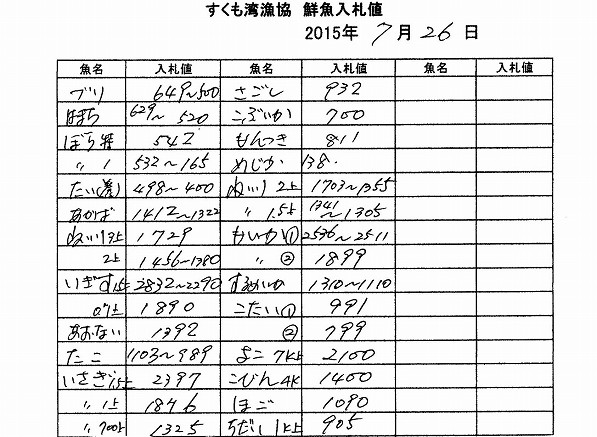 すくも湾漁協 鮮魚入札値
2015年 7月 26日
魚名 入札値 魚名 入札値 魚名 入札値
ブリ 649〜500 さごし 932
はまち 629〜520 こぶいか 700
ぼら 542 もんつき 811
〃 1 532〜165 めじか 138.
たい(養) 498〜400 ぬいり 2上 1703〜1355
あかば 1412〜1322 〃 1.5上 1341〜1305
ぬいり3上 1729 もいか① 2536〜2511
2上 1456〜1380 〃 ② 1899
いぎす1.5上 2832〜2290 するめいか 1310〜1110
0.7上 1890 こたい① 991
あおない 1392 ② 799
たこ 1103〜989 よこ 7K上 2100
いさぎ1.5上 2397 こびん4K 1400
〃 1上 1846 ほご 1090
〃 700上 1325 ちだい1K上 905